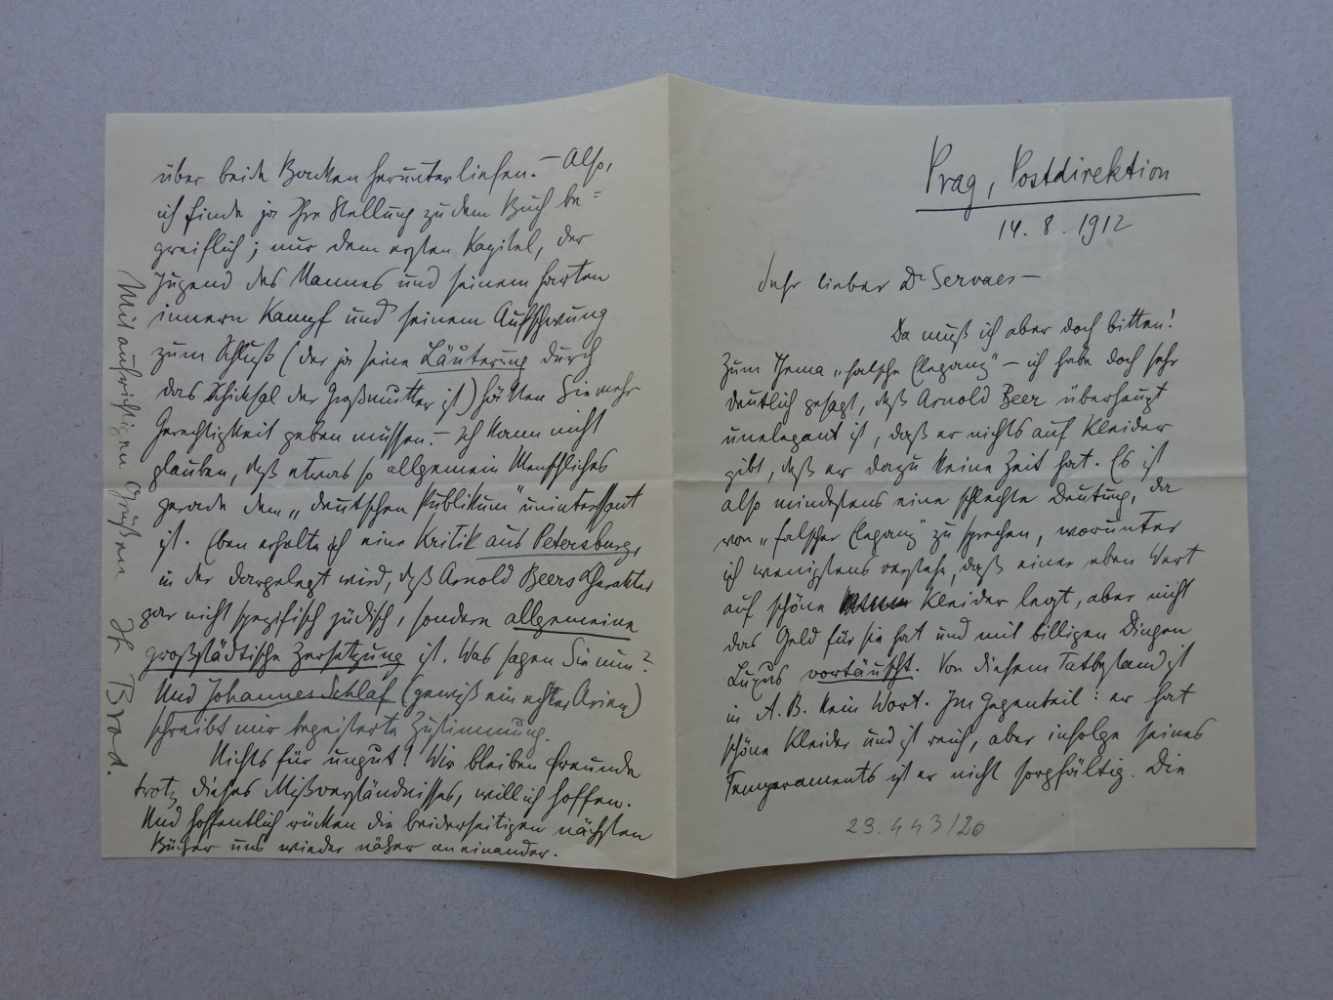 Prag, Postdirektion
14. 8. 1912
Sehr lieber Dr Servaes —
Da muß ich aber doch bitten!
Zum Thema „falsche Eleganz" — ich habe doch sehr
deutlich gesagt, daß Arnold Beer überhaupt
unelegant ist, daß er nichts auf Kleider
gibt, daß er dazu keine Zeit hat. Es ist
also mindestens eine schlechte Deutung, da
von „falscher Eleganz" zu sprechen, worunter
ich wenigstens verstehe, daß einer eben Wert
auf schöne Kleider legt, aber nicht
das Geld für sie hat und mit billigen Dingen
Luxus vortäuscht. Von diesem Tatbestand ist
in A. B. kein Wort. Im Gegenteil: er hat
schöne Kleider und ist reich, aber infolge seines
Temperaments ist er nicht sorgfältig. Die
23.443/20
über beide Backen herunterliefen. — Also,
ich finde ja Ihre Stellung zu dem Buch be=
greiflich; nur dem ersten Kapitel, der
Jugend des Mannes und seinem harten
innern Kampf und seinem Aufschwung
zum Schluß (der ja seine Läuterung durch
das Schicksal der Großmutter ist) hätten Sie mehr
Gerechtigkeit geben müssen. — Ich kann nicht
glauben, daß etwas so allgemein Menschliches
gerade dem „deutschen Publikum" uninteressant
ist. Eben erhalte ich eine Kritik aus Petersburg,
in der dargelegt wird, daß Arnold Beers Charakter
gar nicht spezifisch jüdisch, sondern allgemeine
großstädtische Zersetzung ist. Was sagen Sie nun?
Und Johannes Schlaf (gewiß ein echter Arier)
schreibt mir begeisterte Zustimmung.
Nichts für ungut! Wir bleiben Freunde
trotz dieses Mißverständnisses, will ich hoffen.
Und hoffentlich rücken die beiderseitigen nächsten
Bücher uns wieder näher aneinander.
Mit aufrichtigen Grüßen Ihr Brod.